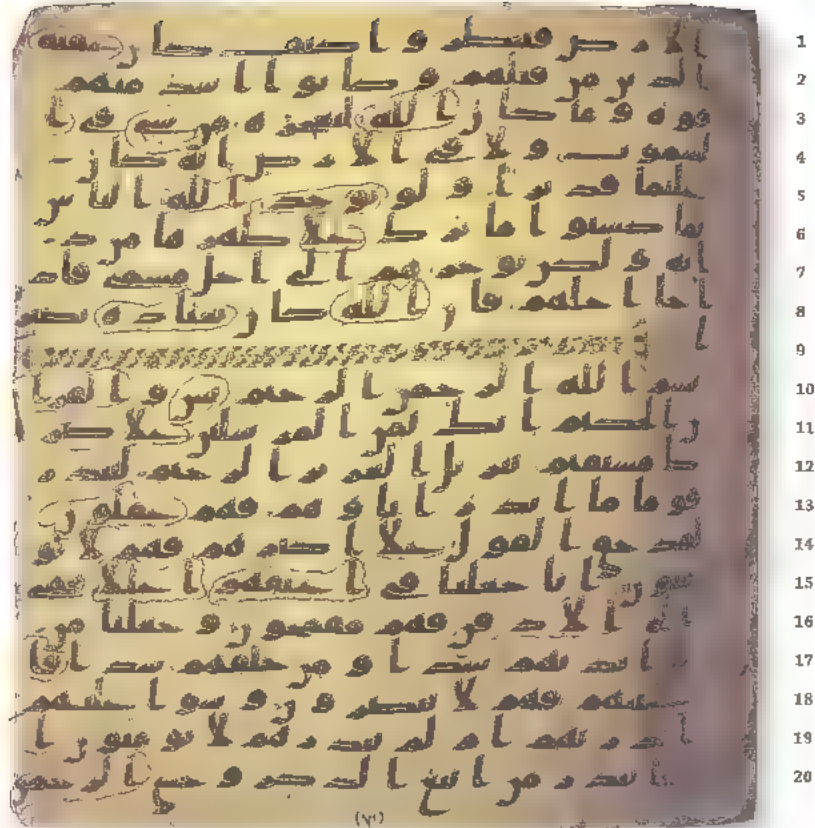 1 الارض فينظروا كيف كان عقبه
2 الذين من قبلهم وكانوا اشد منهم
3 قوه وما كان الله ليعجزه من شي في ا
4 لسموت ولا في الارض انه كان
5 عليما قديرا ولو يوخذ الله الناس
6 بما كسبوا ما ترك علا ظهرها من د
7 ابه ولكن يوخرهم الى اجل مسمى فاذ
8 ا جا اجلهم فان الله كان بعباده بصير
9 ا
10 بسم الله الرحمن الرحيم يس والقرا
11 ن الحكيم انك لمن المرسلين علا صر
12 ط مستقيم تنزيل العزيز الرحيم لتنذر
13 قوما ما انذر اباوهم فهم غفلون
14 لقد حق القول علا اكثرهم فهم لا يو
15 منون انا جعلنا في اعنقهم اغللا فهي
16 الى الاذقن فهم مقمحون وجعلنا من
17 بين ايديهم سدا ومن خلفهم سدا فا
18 غشينهم فهم لا يبصرون وسوا عليهم
19 اانذرتهم ام لم تنذرهم لا يومنون ا
20 نما تنذر من اتبع الذكر وخشي الرحمن
(٧١)